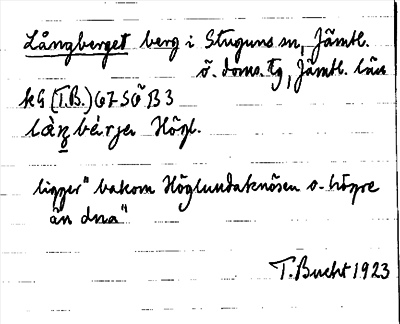 Långberget berg i Stuguns sn, Jämtl.
ö. doms. tg, Jämtl. län
kG (T.B.) 67 SÖ B3
Högl.
ligger "bakom Höglundaknösen o. högre
än dna"
T. Bucht 1923